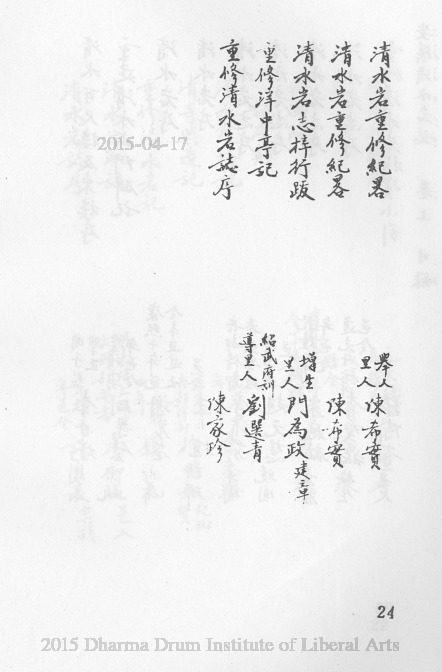 清水岩重修紀畧
舉人
里人
陳希實
清水岩重修紀畧
陳希實
清水岩志梓行跋
增生
里人
門為政建章
重修洋中亭記
紹武府訓
導里人
劉選青
重修清水岩誌序
陳家珍
2015-04-17
24
2015 Dharma Drum Institute of Liberal Arts